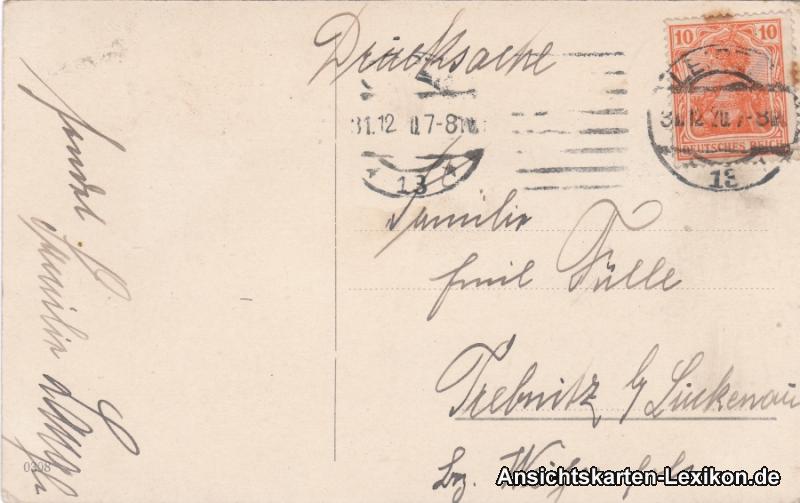 Drucksache
10 10
DEUTSCHES REICH
31.12 20.7-8N.
13
31.12 20.7-8N.
13
Familie
Emil Fülle
Trebnitz b/ Luckenau
Bz.
Familie
0398
Ansichtskarten-Lexikon.de